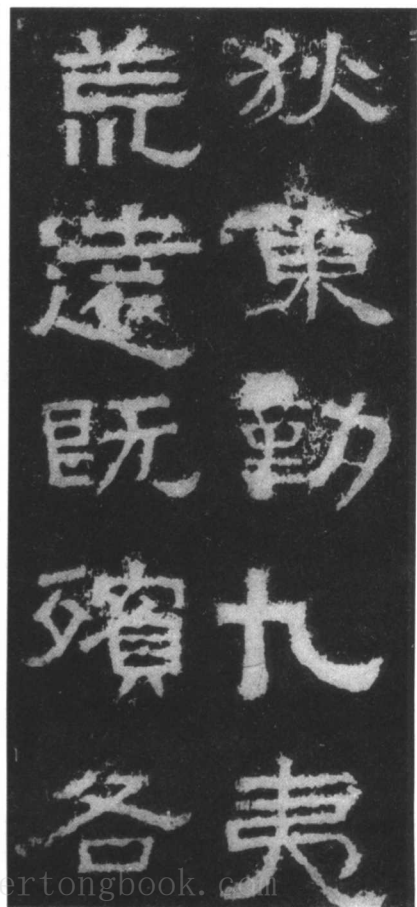 狄東勤九夷
荒遠既殯各
ertongbook.com